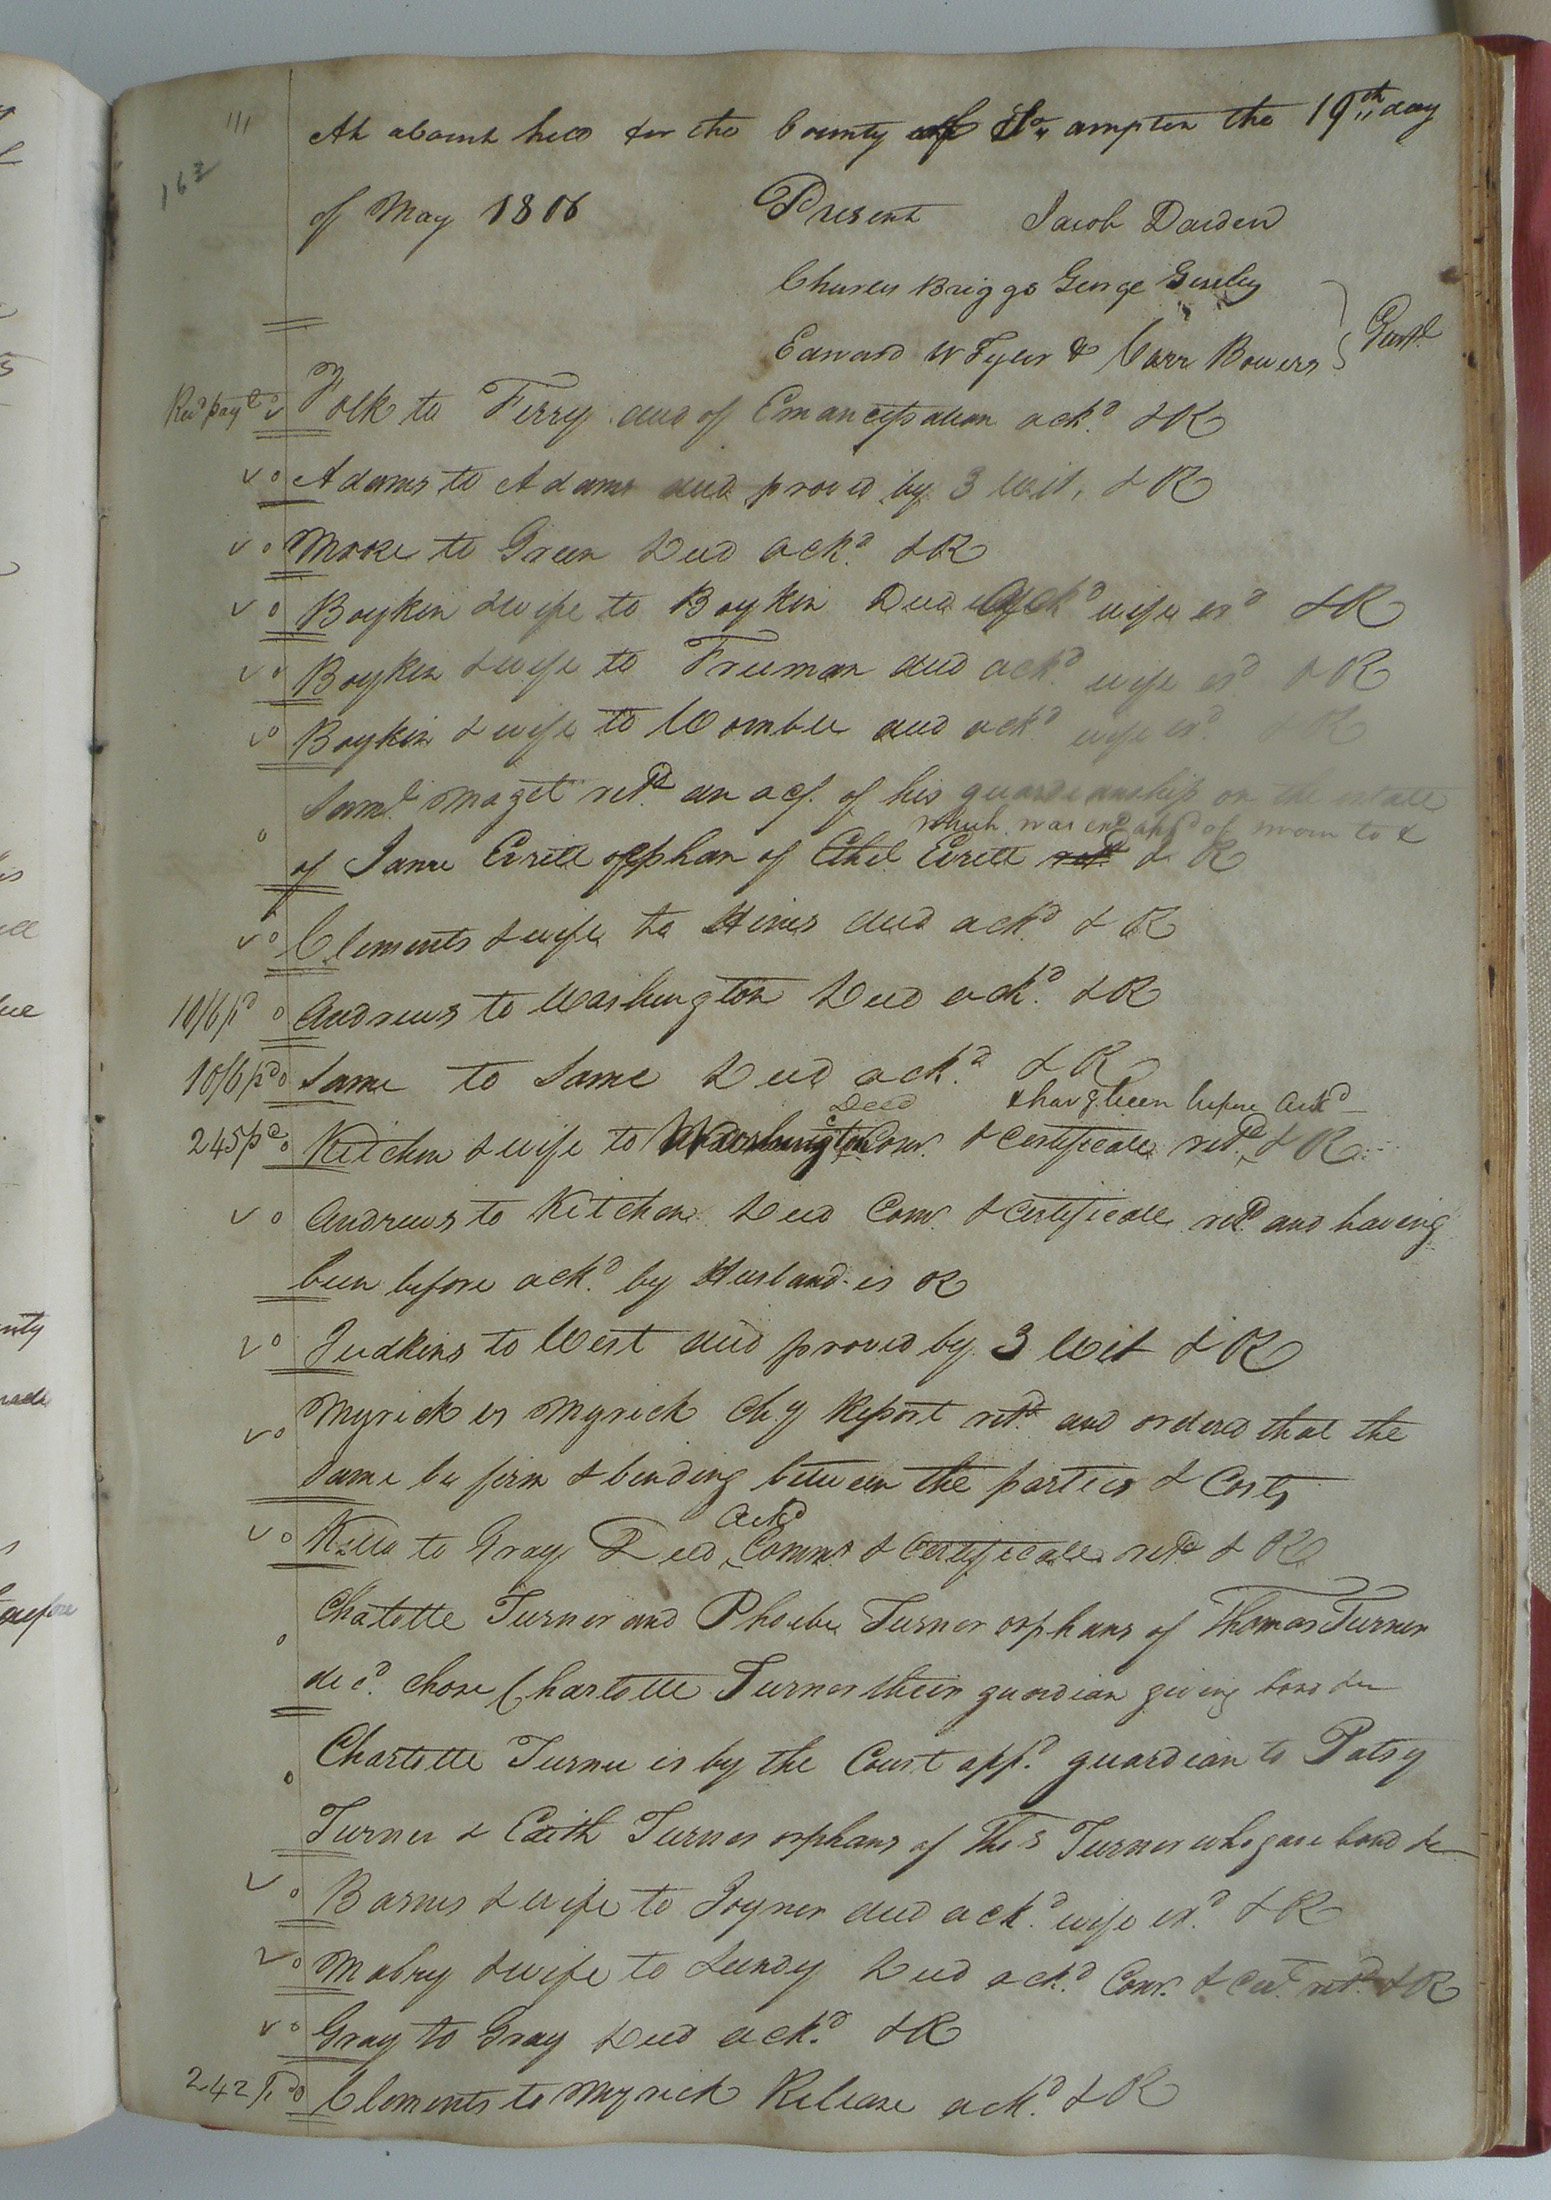 111
163
At a Court held for the County of So,, ampton the 19th day
of May 1806 Present Jacob Darden
Charles Briggs George Gurley
Edward W Tyler & Carr Bowers } Gentn
Recd payt v Folk to Ferry deed of Emancipation ackd & R
v o Adams to Adams deed proved by 3 Wit, & R
v o Moke to Green Deed ackd & R
v o Boykin & wife to Boykin Deed Ackd wife exd & R
v o Boykin & wife to Freeman deed ackd wife exd & R
v o Boykin & wife to Womble deed ackd wife exd & R
Saml Maget retd an acct. of his guardianship on the estate
which was exd appd of sworn to &
o of Jamie Evritt orphan of Ethel Evritt retd & R
v o Clements & wife to Hines deed ackd & R
10/6 pd o Andrews to Washington Deed ackd & R
10/6 pd o Same to Same Deed ackd & R
Deed & havg been before ackd
245 pd o Kitchen & wife to Washington Comn & Certificate retd & R
v o Andrews to Kitchen Deed Comn & Certificate retd and having
been before ackd by Husband is R
v o Judkins to West deed proved by 3 Wit & R
v o Myrick vs Myrick Chy Report retd and ordered that the
same be firm & binding between the parties & Costs
ackd
v o Kello to Gray Deed Commn & Certificate retd & R
o Chatotte Turner and Phoebe Turner orphans of Thomas Turner
decd chose Charlotte Turner their guardian giving bond &c
o Charlotte Turner is by the Court appd guardian to Patsy
Turner & Edith Turner orphans of Thos Turner who gave bond &c
v o Barnes & wife to Joyner deed ackd wife exd & R
v o Mabry & wife to Lundy Deed ackd Comn & Cert retd & R
v o Gray to Gray Deed ackd & R
242 pd o Clements to Myrick Release ackd & R